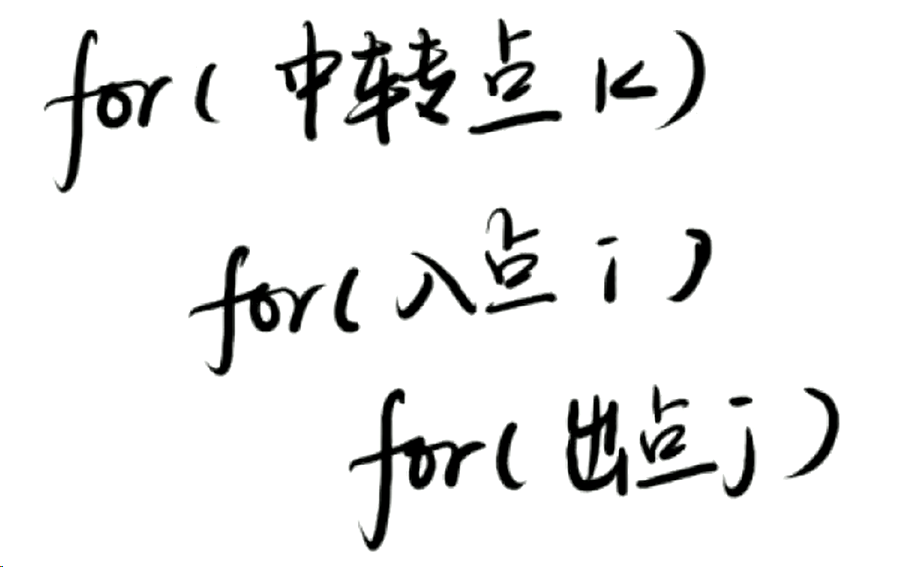 for( 中转点 k)
for( 入点 i )
for( 出点 j )